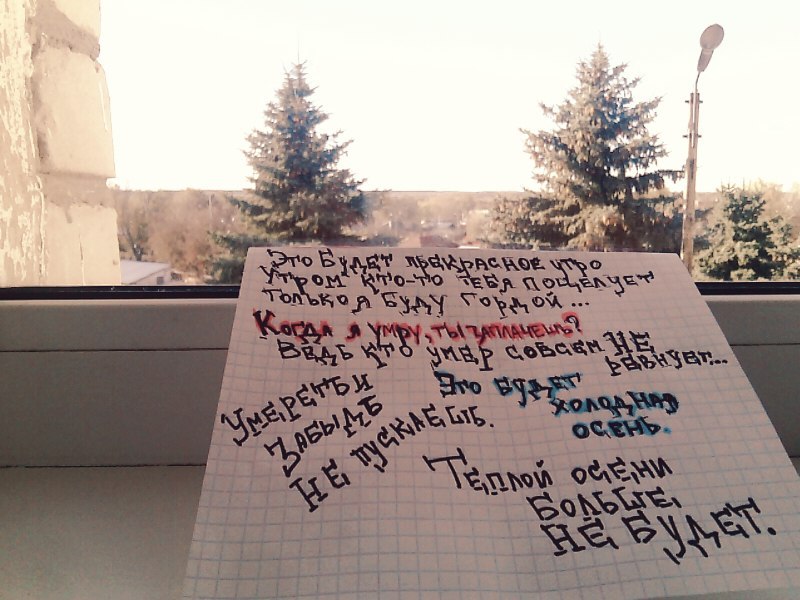 Это будет прекрасное утро
Утром кто-то тебя поцелует
Только я буду гордой ...
Когда я умру, ты заплачешь?
Ведь кто умер совсем не
ревнует...
Умереть и
забыть
не пускаешь.
Это будет
холодная
осень.
Теплой осени
больше
не будет.